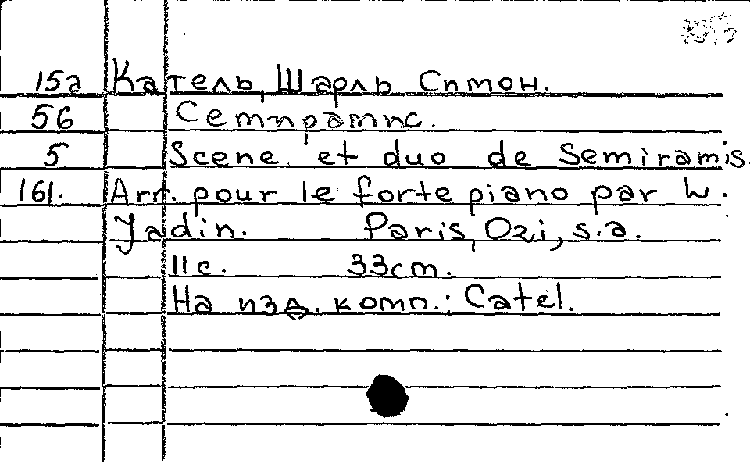 15а Катель, Шарль Симон.
56 Семирамис.
5 Scene et duo de Semiramis.
161. Arr. pour le forte piano par W.
Jadin. Paris, Ozi, s.a.
11с. 33cm.
На изд. комп.: Catel.